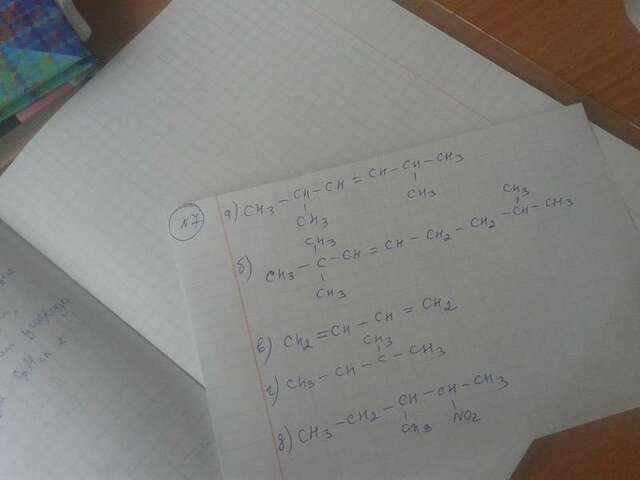 №7
а) CH3 – CH – CH = CH – CH – CH3
CH3 CH3
CH3 CH3
б) CH3 – C – CH = CH – CH2 – CH2 – CH – CH3
CH3
в) CH2 = CH – CH = CH2
CH3
г) CH3 – CH – C – CH3
д) CH3 – CH2 – CH – CH – CH3
CH3 NO2